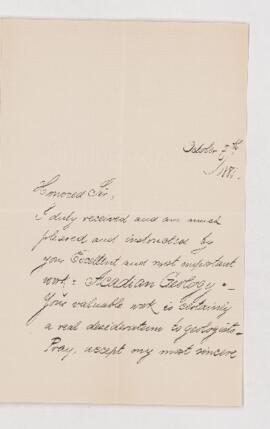 October 7th
Honored Sir,
I duly received and am much
pleased and instructed by
your Excellent and most important
work: Acadian Geology.—
Your valuable work is certainly
a real desideratum to geologists.
Pray, accept my most sincere